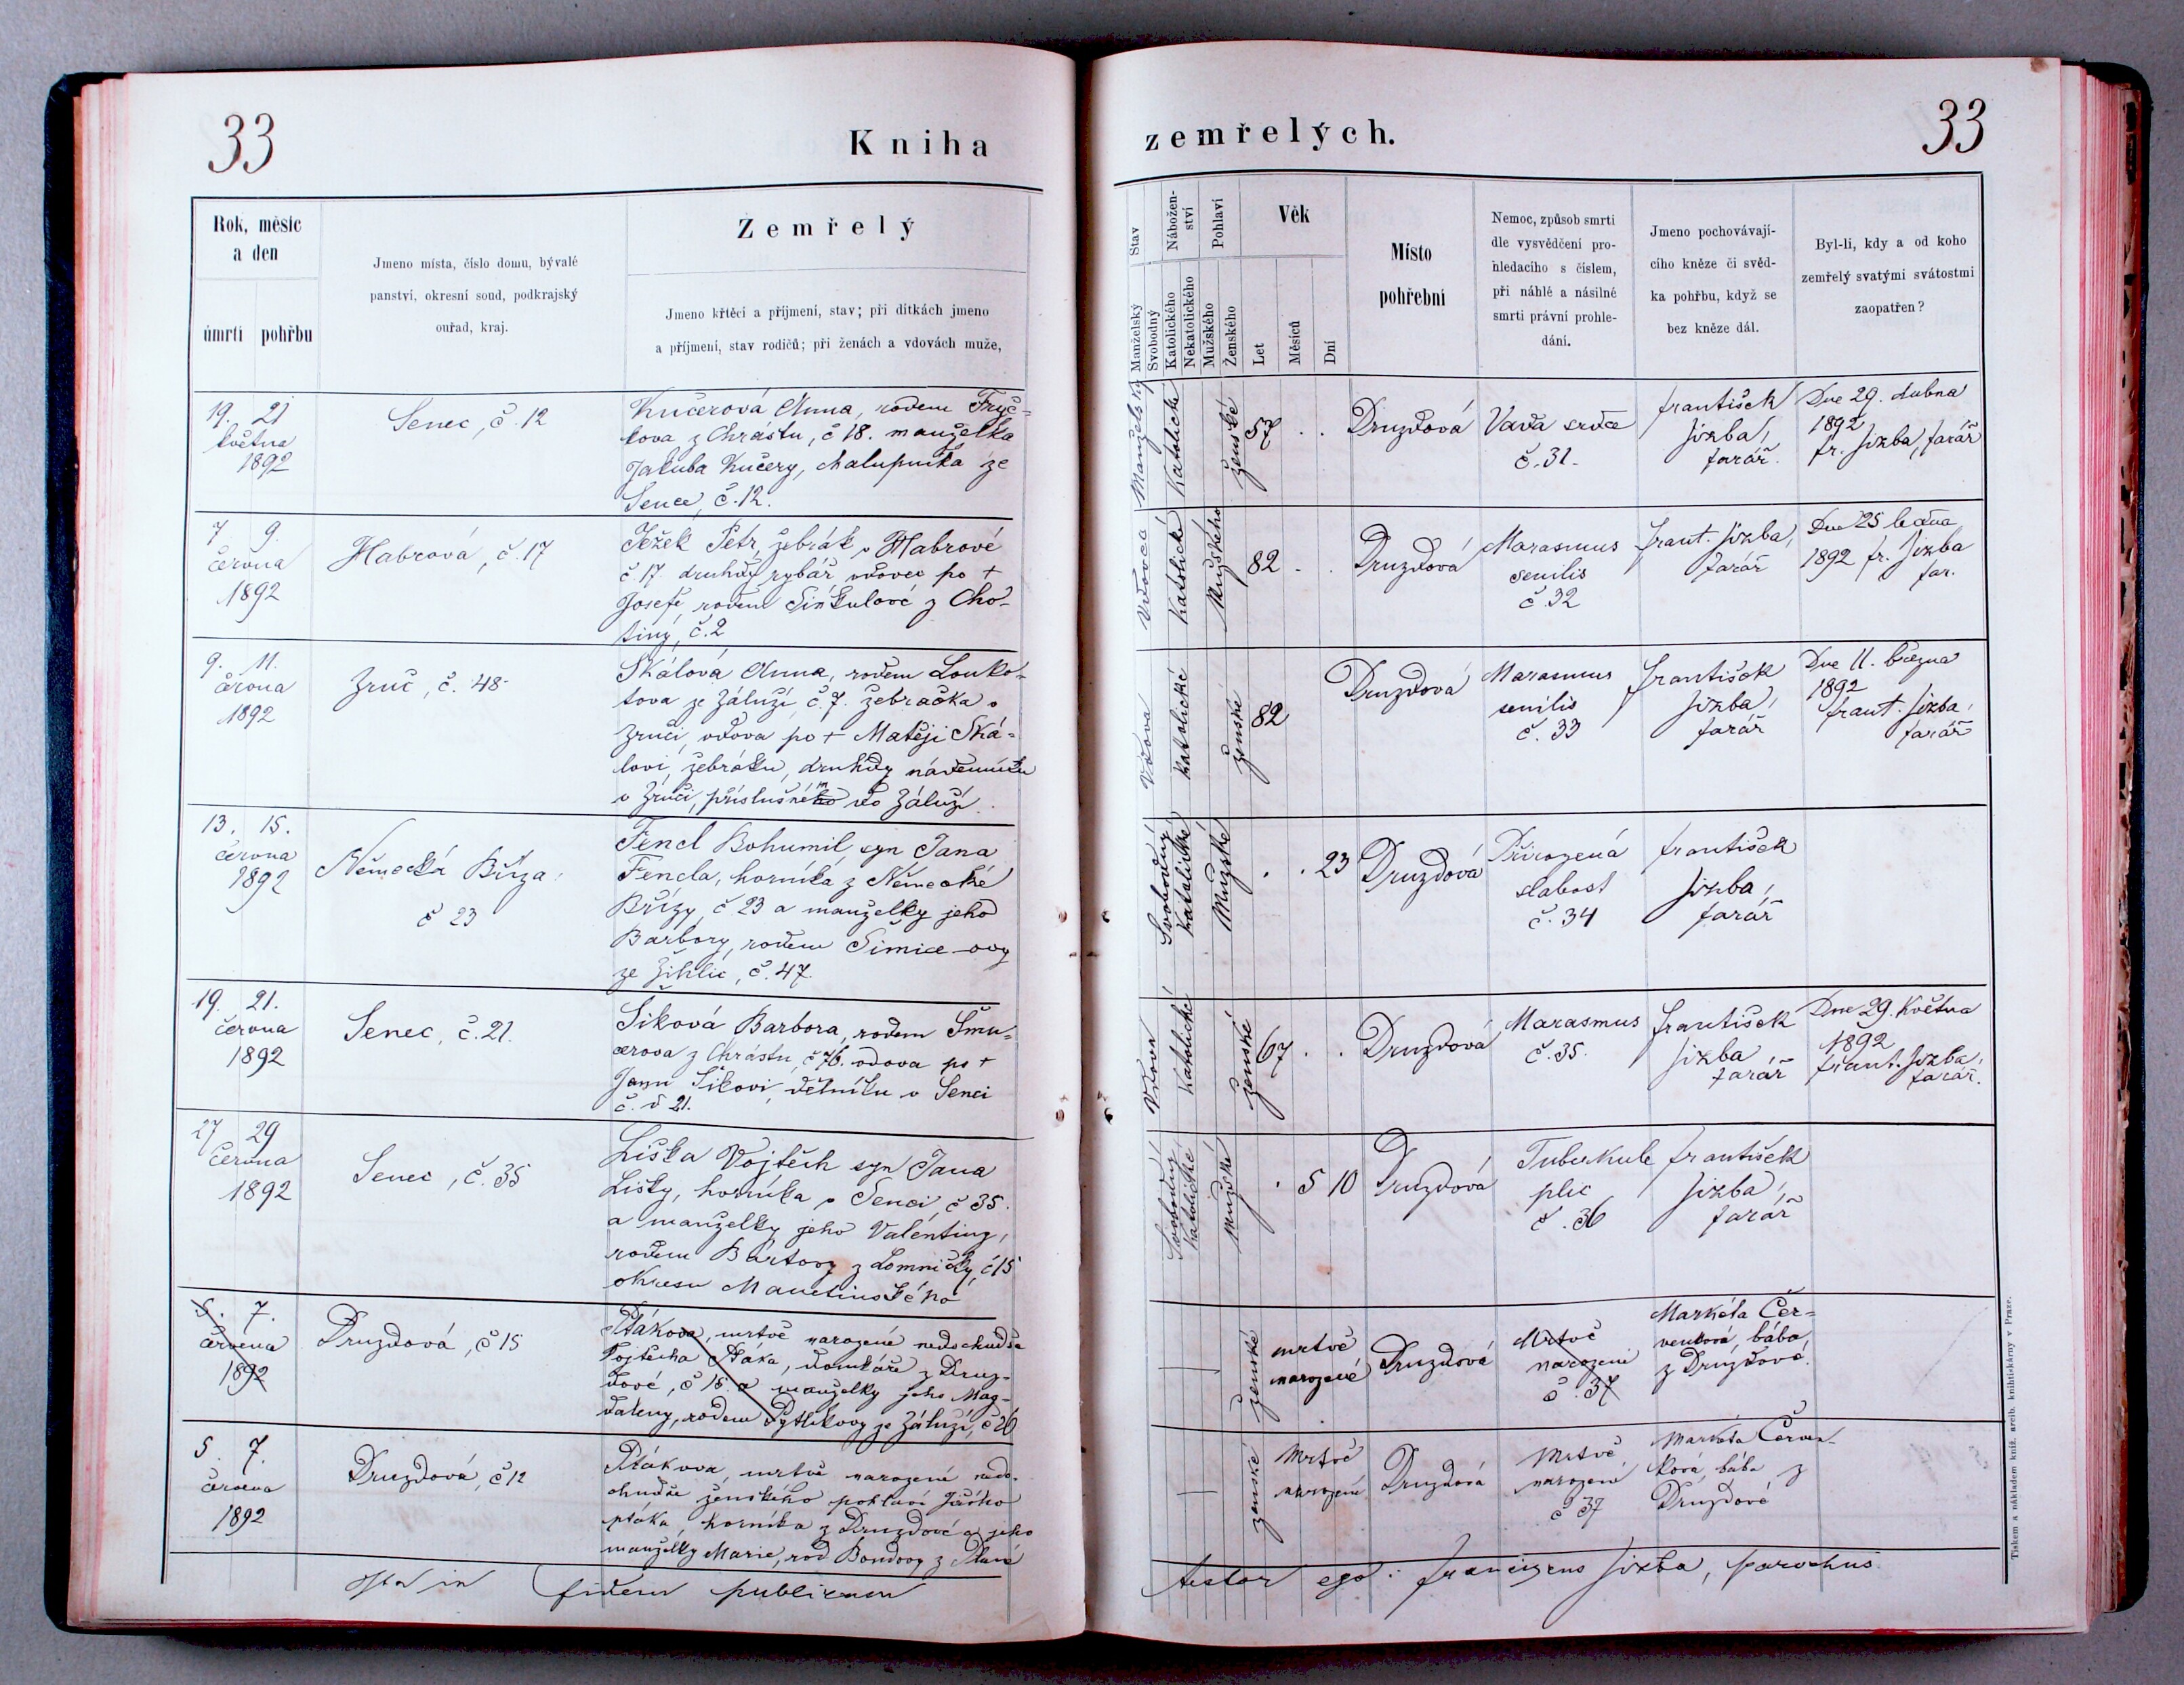 33
Kniha
Rok, měsíc
a den
úmrtí pohřbu
Jmeno místa, číslo domu, bývalé
panství, okresní soud, podkrajský
ouřad, kraj.
Zemřelý
Jmeno křtěcí a příjmení, stav; při dítkách jmeno
a příjmení, stav rodičů; při ženách a vdovách muže,
19. 21
května
1892
Senec, č. 12
Kučerová Anna, rodem Fryč-
kova z Chrástu, č 18. manželka
Jakuba Kučery, chalupníka ze
Sence, č. 12.
7 9.
června
1892
Habrová, č. 17
Ježek Petr, žebrák v Habrové
č. 17. druhdy rybář vdovec po +
Josefě, rodem Sinkulové z Cho-
tiny, č. 2
9. 11.
června
1892
Zruč, č. 48
Skálová Anna, rodem Louko-
tova ze Záluží, č. 7. žebračka v
Zruči, vdova po + Matěji Ská-
lovi, žebráku, druhdy nádenníku
v Zruči, příslušném do Záluží.
13. 15.
června
1892
Německá Bříza,
č 23
Fencl Bohumil, syn Jana
Fencla, horníka z Německé
Břízy, č 23 a manželky jeho
Barbory, rodem Šimice-ovy
ze Žihlic, č. 47.
19. 21.
června
1892
Senec, č. 21.
Šiková Barbora, rodem Šmu-
cerova z Chrástu, č 76. vdova po +
Janu Šikovi, dělníku v Senci
č. d 21.
27 29
června
1892
Senec, č. 35
Liška Vojtěch syn Jana
Lišky, horníka v Senci, č 35.
a manželky jeho Valentiny,
rodem Bártovy z Lomničky, č 15
okresu Manetinského
5. 7.
července
1892
Druzdová, č 15
Ptákova, mrtvě narozené nedochudče
Vojtěcha Ptáka, domkáře z Druz-
dové, č 15. a manželky jeho Mag-
daleny, rodem Pytlíkovy ze Záluží, č 26
5. 7.
1892
Druzdová, č 12
Ptákova, mrtvě narozené nedo-
chudče ženského pohlaví
ptáka, horníka z Druzdové a jeho
manželky Marie, rod. Bondovy z Plané
in fidem publicam
33
zemřelých.
Stav
Manželský
Svobodný
Nábožen-
ství
Katolického
Nekatolického
Pohlaví
Mužského
Ženského
Věk
Let
Měsíců
Dní
Místo
pohřební
Nemoc, způsob smrti
dle vysvědčení pro-
hledacího s číslem,
při náhlé a násilné
smrti právní prohle-
dání.
Jmeno pochovávají-
cího kněze či svěd-
ka pohřbu, když se
bez kněze dál.
Byl-li, kdy a od koho
zemřelý svatými svátostmi
zaopatřen?
Manželská
Katolické
ženské
57 . .
Druzdová
Vada srdce
č. 31.
František
Jizba,
farář.
Dne 29. dubna
1892
Fr. Jizba, farář
Vdovec
Katolické
Mužského
82 . .
Druzdová
Marasmus
senilis
č. 32
Frant. Jizba,
farář
Dne 25 března
1892 Fr. Jizba
far.
Vdova
Katolické
ženské
82
Druzdová
Marasmus
senilis
č. 33
František
Jizba,
farář
Dne 11. března
1892
Frant. Jizba,
farář
Svobodný
Katolické
Mužské
. . 23
Druzdová
Přirozená
slabost
č. 34
František
Jizba,
farář
Vdova
Katolické
ženské
67 . .
Druzdová
Marasmus
č. 35.
František
Jizba
farář
Dne 29. Května
1892
Frant. Jizba,
farář.
Svobodný
Katolické
Mužské
. 5 10
Druzdová
Tuberkule
plic
č. 36
František
Jizba,
farář
ženské
mrtvě
narozené
Druzdová
Mrtvě
narozené
č. 37
Markéta Čer-
venková, bába,
z Druzdové.
ženské
Mrtvě
narozené
Druzdová
Mrtvě
narozené
č 37
Markéta Červen-
ková, bába z
Druzdové
testor ego: Franciscus Jizba, parochus
Tiskem a nákladem kníž. arcib. knihtiskárny v Praze.